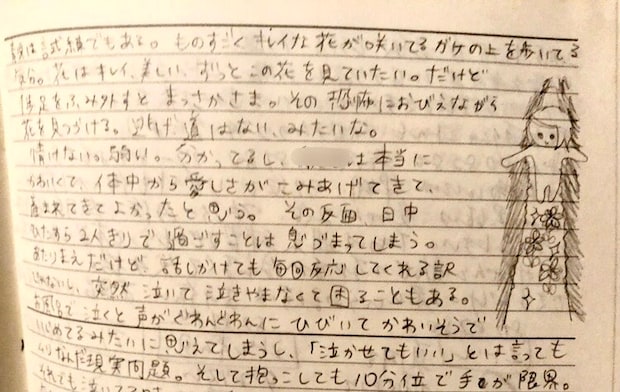 は試練でもある。ものすごくキレイな花が咲いてるガケの上を歩いてる
気分。花はキレイ、美しい、ずっとこの花を見ていたい。だけど
足をふみ外すとまっさかさま。その恐怖におびえながら
花を見つづける。逃げ道はない、みたいな。
情けない。弱い。分かってるし、 は本当に
かわいくて、体中から愛しさがこみあげてきて、
産まれてきてよかったと思う。その反面、日中
ひたすら2人きりで過ごすことは息づまってしまう。
あたりまえだけど、話しかけても毎回反応してくれる訳
じゃないし、突然泣いて泣きやまなくて困ることもある。
お風呂で泣くと声がぐわんぐわんにひびいてかわいそうで
いじめてるみたいに思えてしまうし、「泣かせてもいい」とは言っても
なんだ現実問題。そして抱っこしても10分位で手が限界。